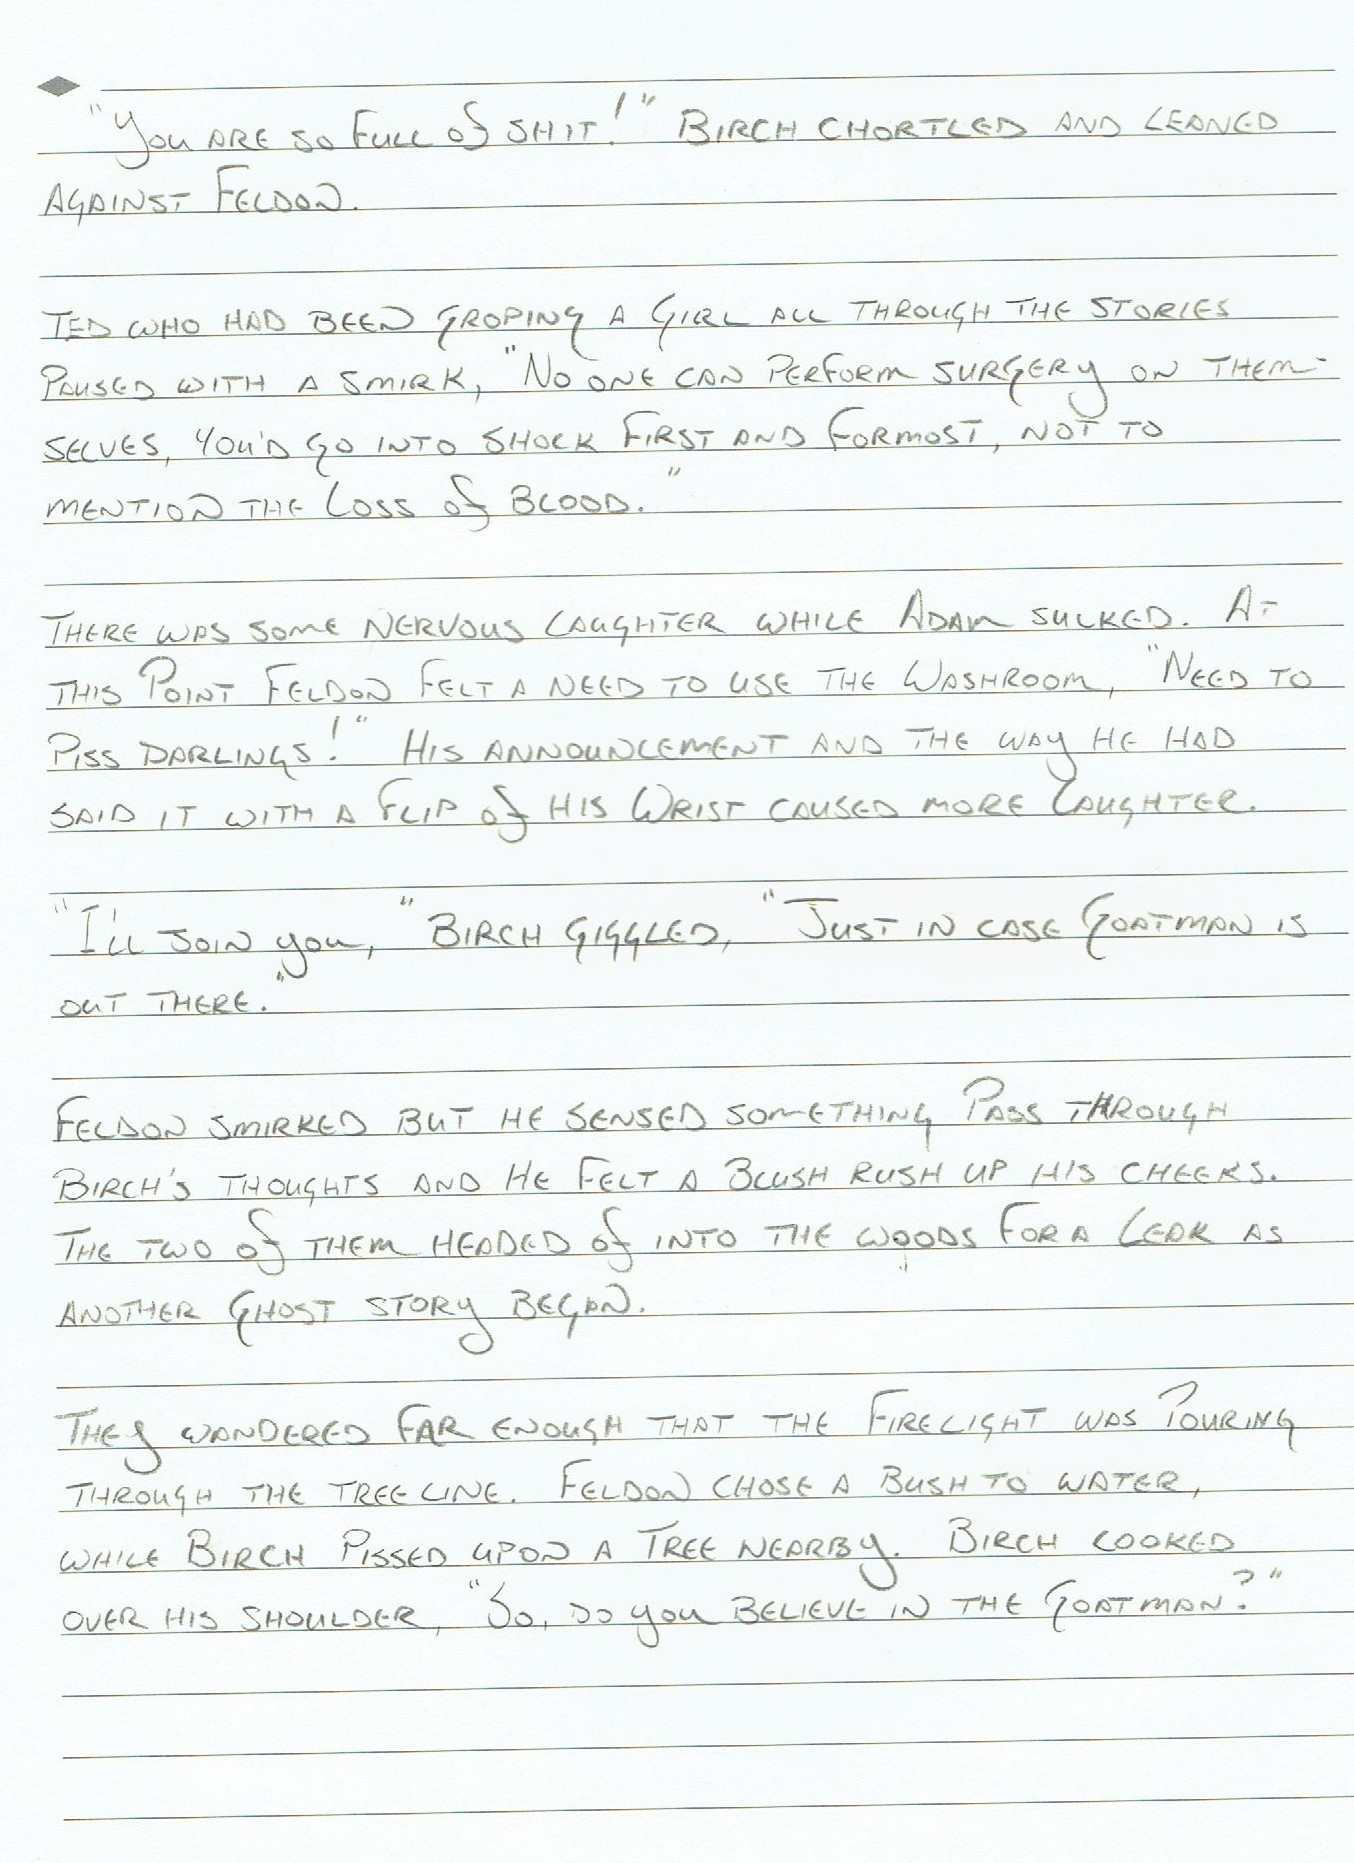 "You are so full of shit!" Birch chortled and leaned
against Feldon.
Ted who had been groping a girl all through the stories
paused with a smirk, "No one can perform surgery on them-
selves, you'd go into shock first and formost, not to
mention the loss of blood."
There was some nervous laughter while Adam sulked. At
this point Feldon felt a need to use the washroom, "Need to
piss darlings!" His announcement and the way he had
said it with a flip of his wrist caused more laughter.
"I'll join you," Birch giggled, "Just in case Goatman is
out there."
Feldon smirked but he sensed something pass through
Birch's thoughts and he felt a blush rush up his cheeks.
The two of them headed of into the woods for a leak as
another ghost story began.
They wandered far enough that the firelight was pouring
through the treeline. Feldon chose a bush to water,
while Birch pissed upon a tree nearby. Birch looked
over his shoulder, "So, do you believe in the Goatman?"